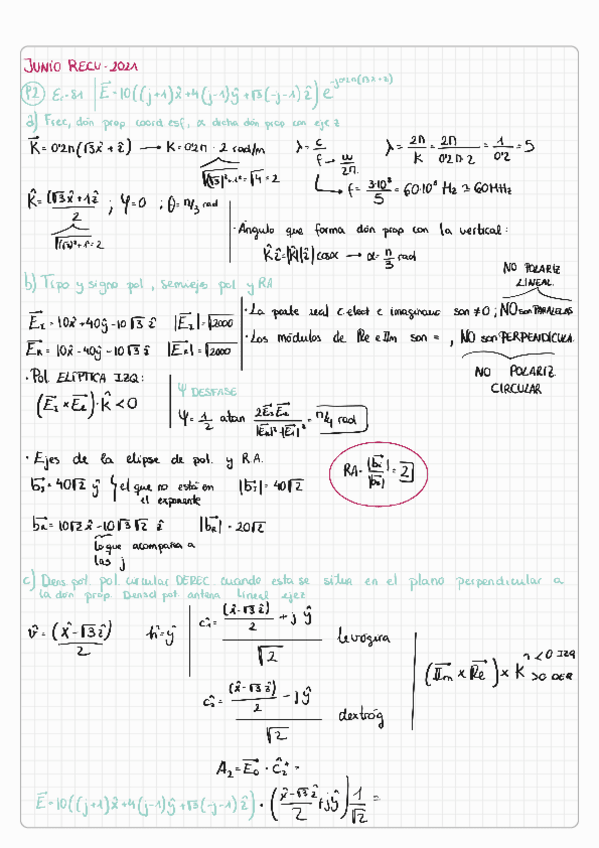 JUNIO RECU-2021
P2 εr=81 | E⃗=10((j+1)x̂+4(j-1)ŷ+√3(-j-1)ẑ) e^-j0'2π(√3x+z)
a) Frec, dón prop coord esf, α dcha dón prop con eje z
K⃗=0'2π(√3x̂+ẑ) → K=0'2π·2 rad/m λ=c/f → ω/2π λ=2π/K=2π/0'2π·2=1/0'2=5
√(√3)²+1²=√4=2 → f=3·10⁸/5=60·10⁶ Hz ≥ 60MHz
K̂=(√3x̂+1ẑ)/2 ; φ=0 ; θ=π/3 rad
√(√3)²+1²=2
· Angulo que forma dón prop con la vertical:
K̂ẑ=|K̂||ẑ|cosα → α=π/3 rad
b) Tipo y signo pol, semiejes pol y RA
NO POLARIZ LINEAL.
E⃗I=10x̂+40ŷ-10√3 ẑ |E⃗I|=√2000 · La parte real c.elect e imaginaria son ≠0; NO son PARALELAS
E⃗R=10x̂-40ŷ-10√3 ẑ |E⃗R|=√2000 · Los módulos de Re e Im son =, NO son PERPENDICULA.
NO POLARIZ. CIRCULAR
· Pol ELÍPTICA IZQ:
(E⃗I×E⃗R)·K̂<0
Ψ DESFASE
Ψ=1/2 atan 2E⃗IE⃗R/|E⃗R|²-|E⃗I|²=π/4 rad
· Ejes de la elipse de pol. y RA.
b⃗I=40√2 ŷ el que no está en el exponente |b⃗I|=40√2
RA=|b⃗I|/|b⃗R|=2
b⃗R=10√2 x̂-10√3√2 ẑ |b⃗R|=20√2
lo que acompaña a las j
c) Dens pot. pol. circular DEREC. cuando esta se situa en el plano perpendicular a
la dón prop. Densd pot. antena lineal eje z
v̂=(x̂-√3ẑ)/2 ĥ=ŷ ĉ1=((x̂-√3ẑ)/2+jŷ)/√2 levogira
(I⃗m×R⃗e)×K̂ <0 IZQ >0 DER
ĉ2=((x̂-√3ẑ)/2-jŷ)/√2 dextróg
A2=E⃗0·ĉ2*=
E⃗=10((j+1)x̂+4(j-1)ŷ+√3(-j-1)ẑ)·((x̂-√3ẑ)/2+jŷ)1/√2=